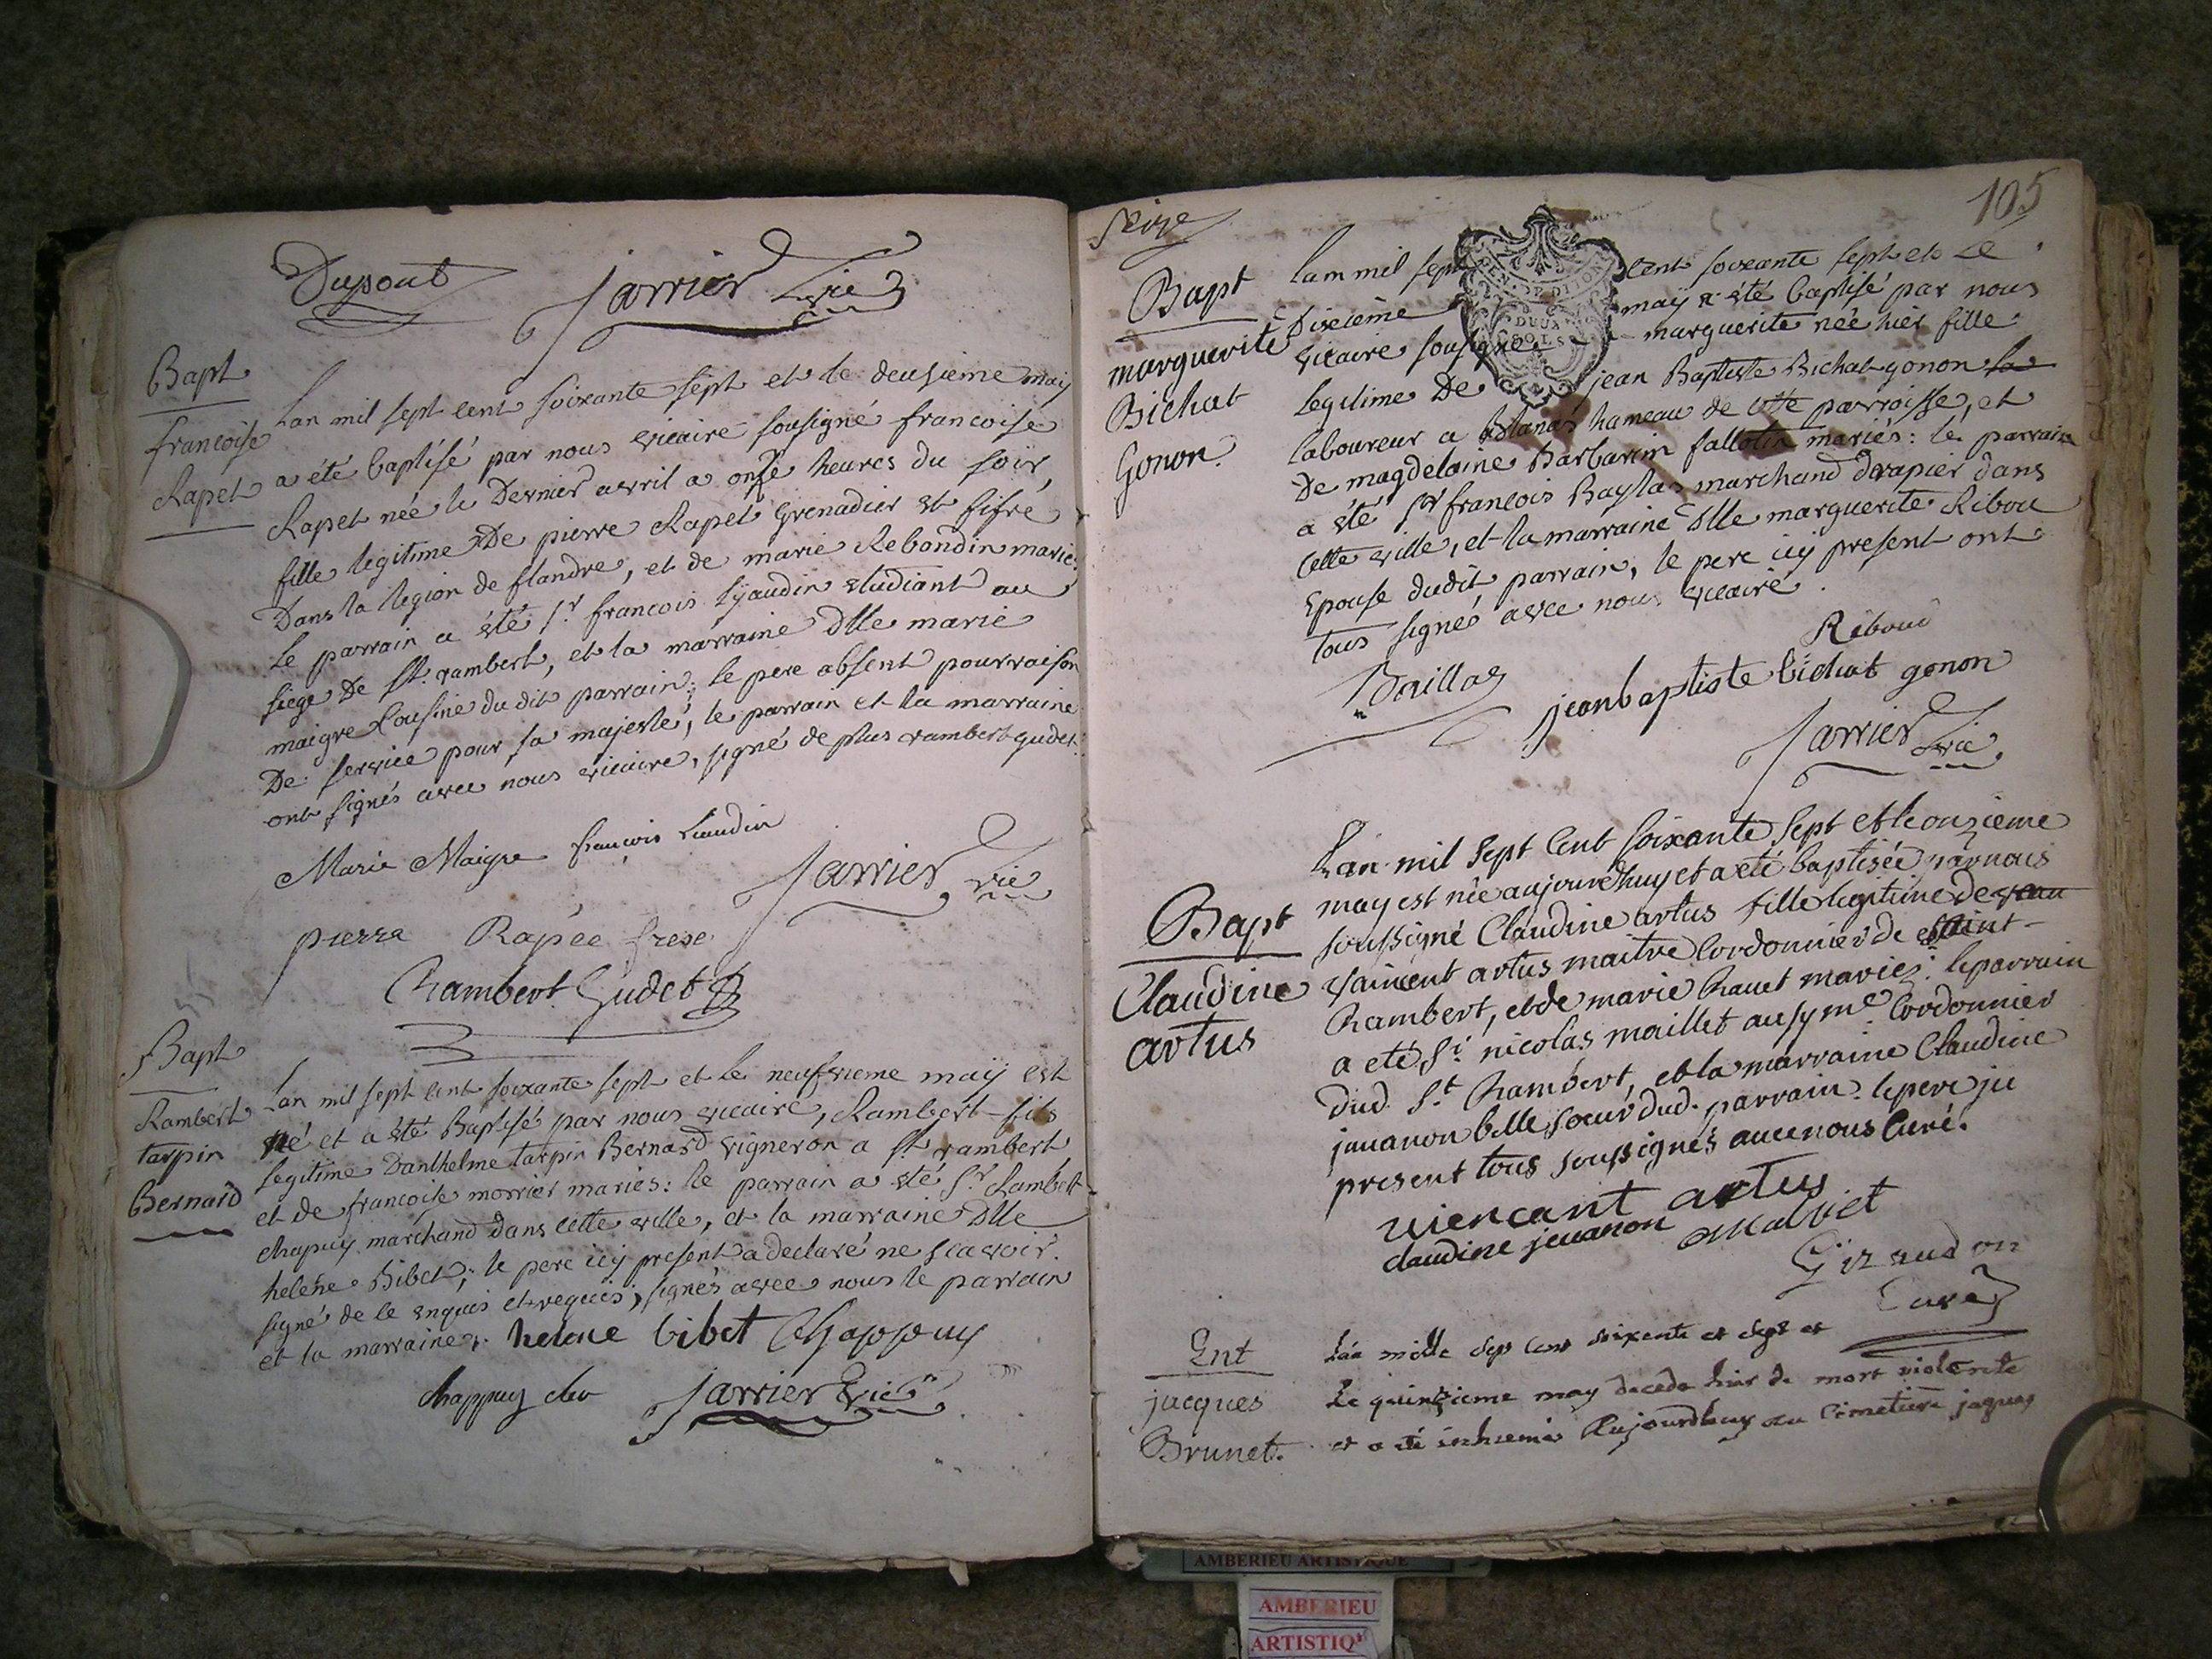 Dupont Jarrier vic
Bapt
francoise
Rapet
Lan mil sept cent soixante sept et le deusieme may
a été baptisé par nous vicaire sousigné francoise
Rapet née le Dernier avril a onze heures du soir,
fille legitime De pierre Rapet Grenadier et fifre
Dans la legion de flandre, et de marie Rebondin mariés
Le parrain a été sr. francois Lyaudin etudiant au
siege De st. rambert, et la marraine dlle marie
maigre Cousine du dit parrain; le pere absent pour raison
De service pour sa majesté, le parrain et la marraine
ont signés avec nous vicaire, signé de plus rambert gudet.
Marie Maigre françois Liaudin
Jarrier vic
pierre Rapée frere
Rambert Gudet
Bapt
Rambert
tarpin
Bernard
Lan mil sept cent soixante sept et le neufvieme may est
né et a été Baptisé par nous vicaire, Rambert fils
legitime Danthelme tarpin Bernard vigneron a st. rambert
et de francoise morrier mariés: le parrain a été sr. Rambert
chapuy marchand dans cette ville, et la marraine Dlle
helene Bibet; le pere icy present a declaré ne scavoir
signé de ce enquis et requis, signés avec nous le parrain
et la marraine. helene bibet Chappuy
chappuy clu Jarrier vic
Seize
105
GEN. DE DIJON
DEUX
SOLS
Bapt
marguerite
Bichat
Gonon.
Lam mil sept cent soixante sept et Le
Disixième may a été baptisé par nous
vicaire sousigné marguerite née hier fille
legitime De jean Baptiste Bichat gonon
laboureur a hameau de cette parroisse, et
De magdelaine Barbarin fallotin mariés: le parrain
a été sr francois Baylas marchand drapier dans
cette ville, et la marraine dlle marguerite Ribou
Epouse dudit parrain, le pere icy present ont
tous signé avec nous vicaire.
Riboud
Baillas jeanbaptiste bichat gonon
Jarrier vic
Bapt
Claudine
artus
Lan mil sept cent soixante sept et le onzieme
may est née aujourdhuy et a eté baptisée par nous
soussigné Claudine artus fille legitime de
vaincent artus maitre Cordonnier de saint-
Rambert, et de marie Rauet mariés: le parrain
a eté sr. nicolas maillet ausy me Cordonnier
dud. st. Rambert, et la marraine Claudine
jauanon belle soeur dud. parrain. le pere jci
present tous soussignés auec nous Curé.
viencant artus
claudine jeuanon malliet
Giraudon
Curé
Ent
jacques
Brunet.
Lan mille sept cens soixante et sept et
Le quinzieme may decede hier de mort violente
et a été inhumé Aujourdhuy au cimetiere jaques
AMBERIEU ARTISTIQUE
AMBERIEU
ARTISTIQ